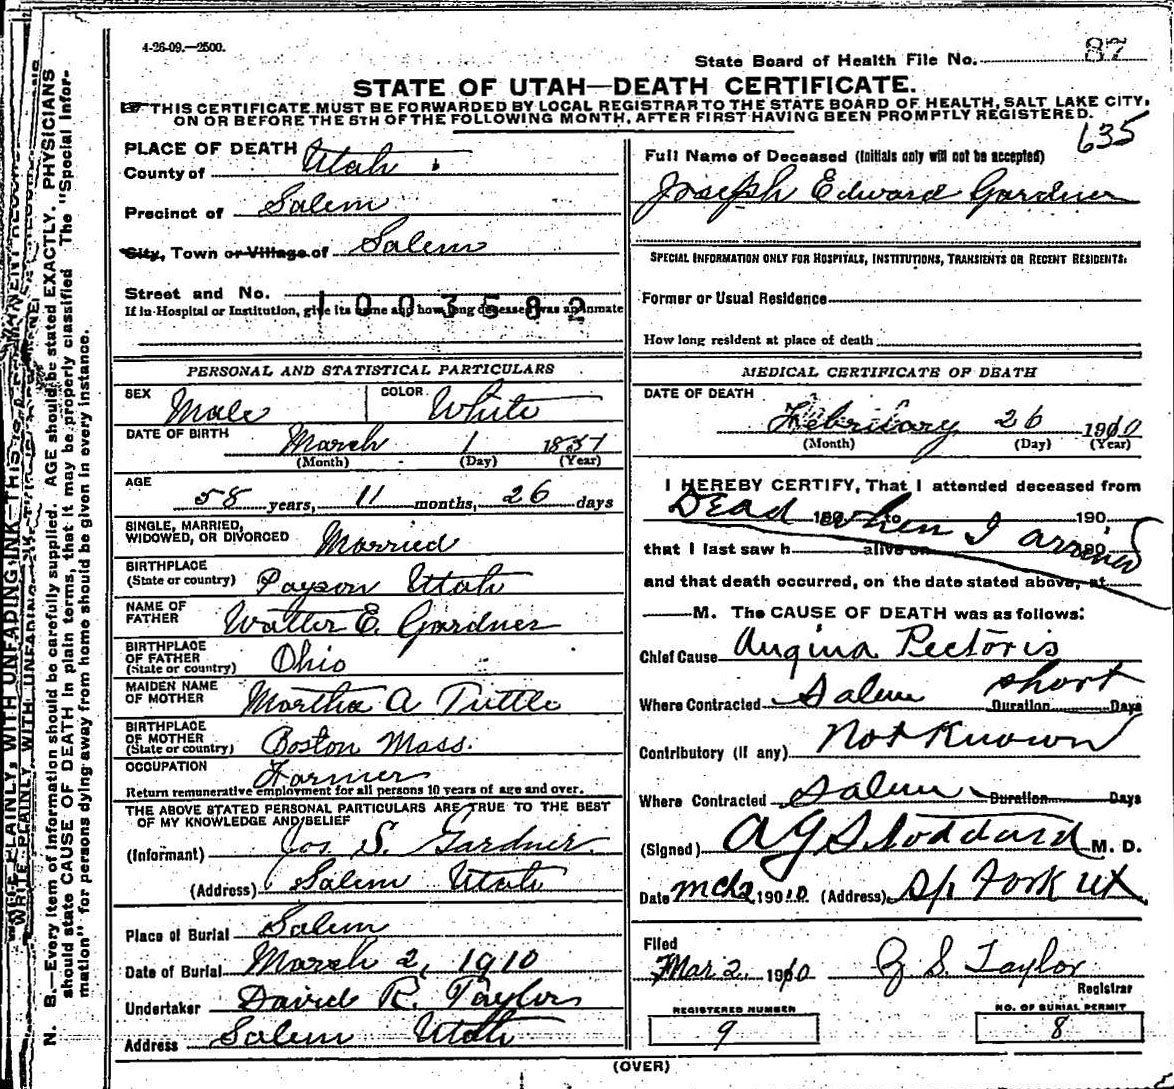 4-26-09.—2500.
State Board of Health File No. 87
STATE OF UTAH—DEATH CERTIFICATE.
THIS CERTIFICATE MUST BE FORWARDED BY LOCAL REGISTRAR TO THE STATE BOARD OF HEALTH, SALT LAKE CITY,
ON OR BEFORE THE 5TH OF THE FOLLOWING MONTH, AFTER FIRST HAVING BEEN PROMPTLY REGISTERED.
635
PLACE OF DEATH
County of Utah
Precinct of Salem
City, Town or Village of Salem
Street and No.
1003582
If in Hospital or Institution, give its name and how long deceased was an inmate
PERSONAL AND STATISTICAL PARTICULARS
SEX Male COLOR White
DATE OF BIRTH March 1 1851
(Month) (Day) (Year)
AGE 58 years, 11 months, 26 days
SINGLE, MARRIED,
WIDOWED, OR DIVORCED Married
BIRTHPLACE
(State or country) Payson Utah
NAME OF
FATHER Walter E. Gardner
BIRTHPLACE
OF FATHER
(State or country) Ohio
MAIDEN NAME
OF MOTHER Martha A Tuttle
BIRTHPLACE
OF MOTHER
(State or country) Boston Mass.
OCCUPATION Farmer
Return remunerative employment for all persons 10 years of age and over.
THE ABOVE STATED PERSONAL PARTICULARS ARE TRUE TO THE BEST
OF MY KNOWLEDGE AND BELIEF
(Informant) Jos S. Gardner.
(Address) Salem Utah
Place of Burial Salem
Date of Burial March 2, 1910
Undertaker David R. Taylor
Address Salem Utah
Full Name of Deceased (Initials only will not be accepted)
Joseph Edward Gardner
SPECIAL INFORMATION ONLY FOR HOSPITALS, INSTITUTIONS, TRANSIENTS OR RECENT RESIDENTS:
Former or Usual Residence
How long resident at place of death
MEDICAL CERTIFICATE OF DEATH
DATE OF DEATH
February 26 1910
(Month) (Day) (Year)
I HEREBY CERTIFY, That I attended deceased from
Dead when I arrived
190, to 190,
that I last saw h alive on 190,
and that death occurred, on the date stated above, at
M. The CAUSE OF DEATH was as follows:
Chief Cause Angina Pectoris
Where Contracted Salem short Duration Days
Contributory (if any) Not Known
Where Contracted Salem Duration Days
(Signed) A G Stoddard M. D.
Date Mch 2 1910 (Address) Sp. Fork Ut
Filed
Mar 2 1910 Z S Taylor
Registrar
REGISTERED NUMBER
9
NO. OF BURIAL PERMIT
8
(OVER)
N. B.—Every item of information should be carefully supplied. AGE should be stated EXACTLY. PHYSICIANS
should state CAUSE OF DEATH in plain terms, that it may be properly classified. The "Special Infor-
mation" for persons dying away from home should be given in every instance.
WRITE PLAINLY, WITH UNFADING INK—THIS IS